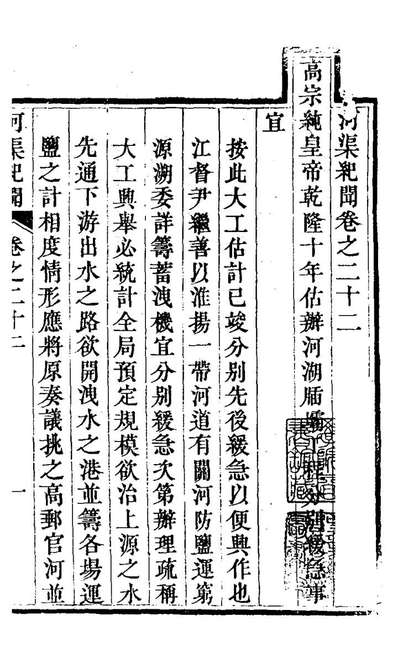 河渠紀聞卷之二十二
高宗純皇帝乾隆十年估辦河湖牐壩工程分别緩急事
宜
按此大工估計已竣分别先後緩急以便興作也
江督尹繼善以淮揚一帶河道有關河防鹽運第
源溯委詳籌蓄洩機宜分别緩急次第辦理疏稱
大工興舉必統計全局預定規模欲治上源之水
先通下游出水之路欲開洩水之港並籌各塲運
鹽之計相度情形應將原奏議挑之高郵官河並
河渠紀聞 卷之二十二 一